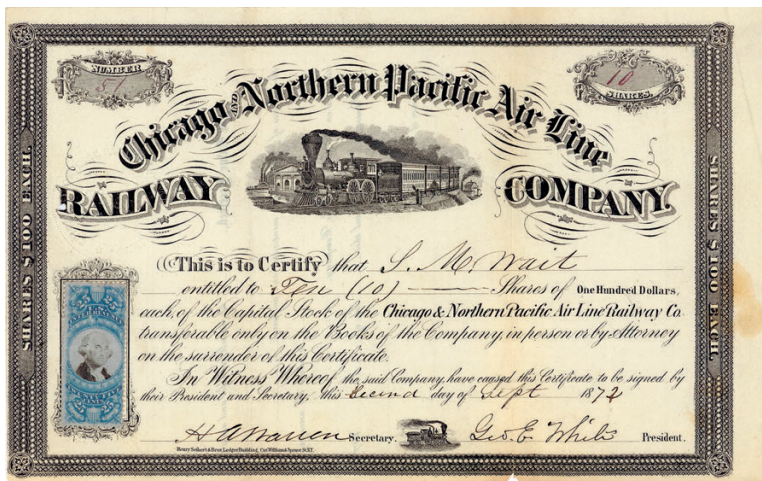 NUMBER
51
10
SHARES.
Chicago AND Northern Pacific Air Line
RAILWAY COMPANY.
SHARES $100 EACH.
SHARES $100 EACH.
This is to Certify that S. M. Wait
entitled to Ten (10) Shares of One Hundred Dollars,
each, of the Capital Stock of the Chicago & Northern Pacific Air Line Railway Co.
transferable only on the Books of the Company, in person or by Attorney
on the surrender of this Certificate.
In Witness Whereof the said Company, have caused this Certificate to be signed by
their President and Secretary, this Second day of Sept 1872
H A Warren Secretary. Geo. E. White President.
Henry Seibert & Bros. Ledger Building, Cor. William & Spruce St. N.Y.
25 25